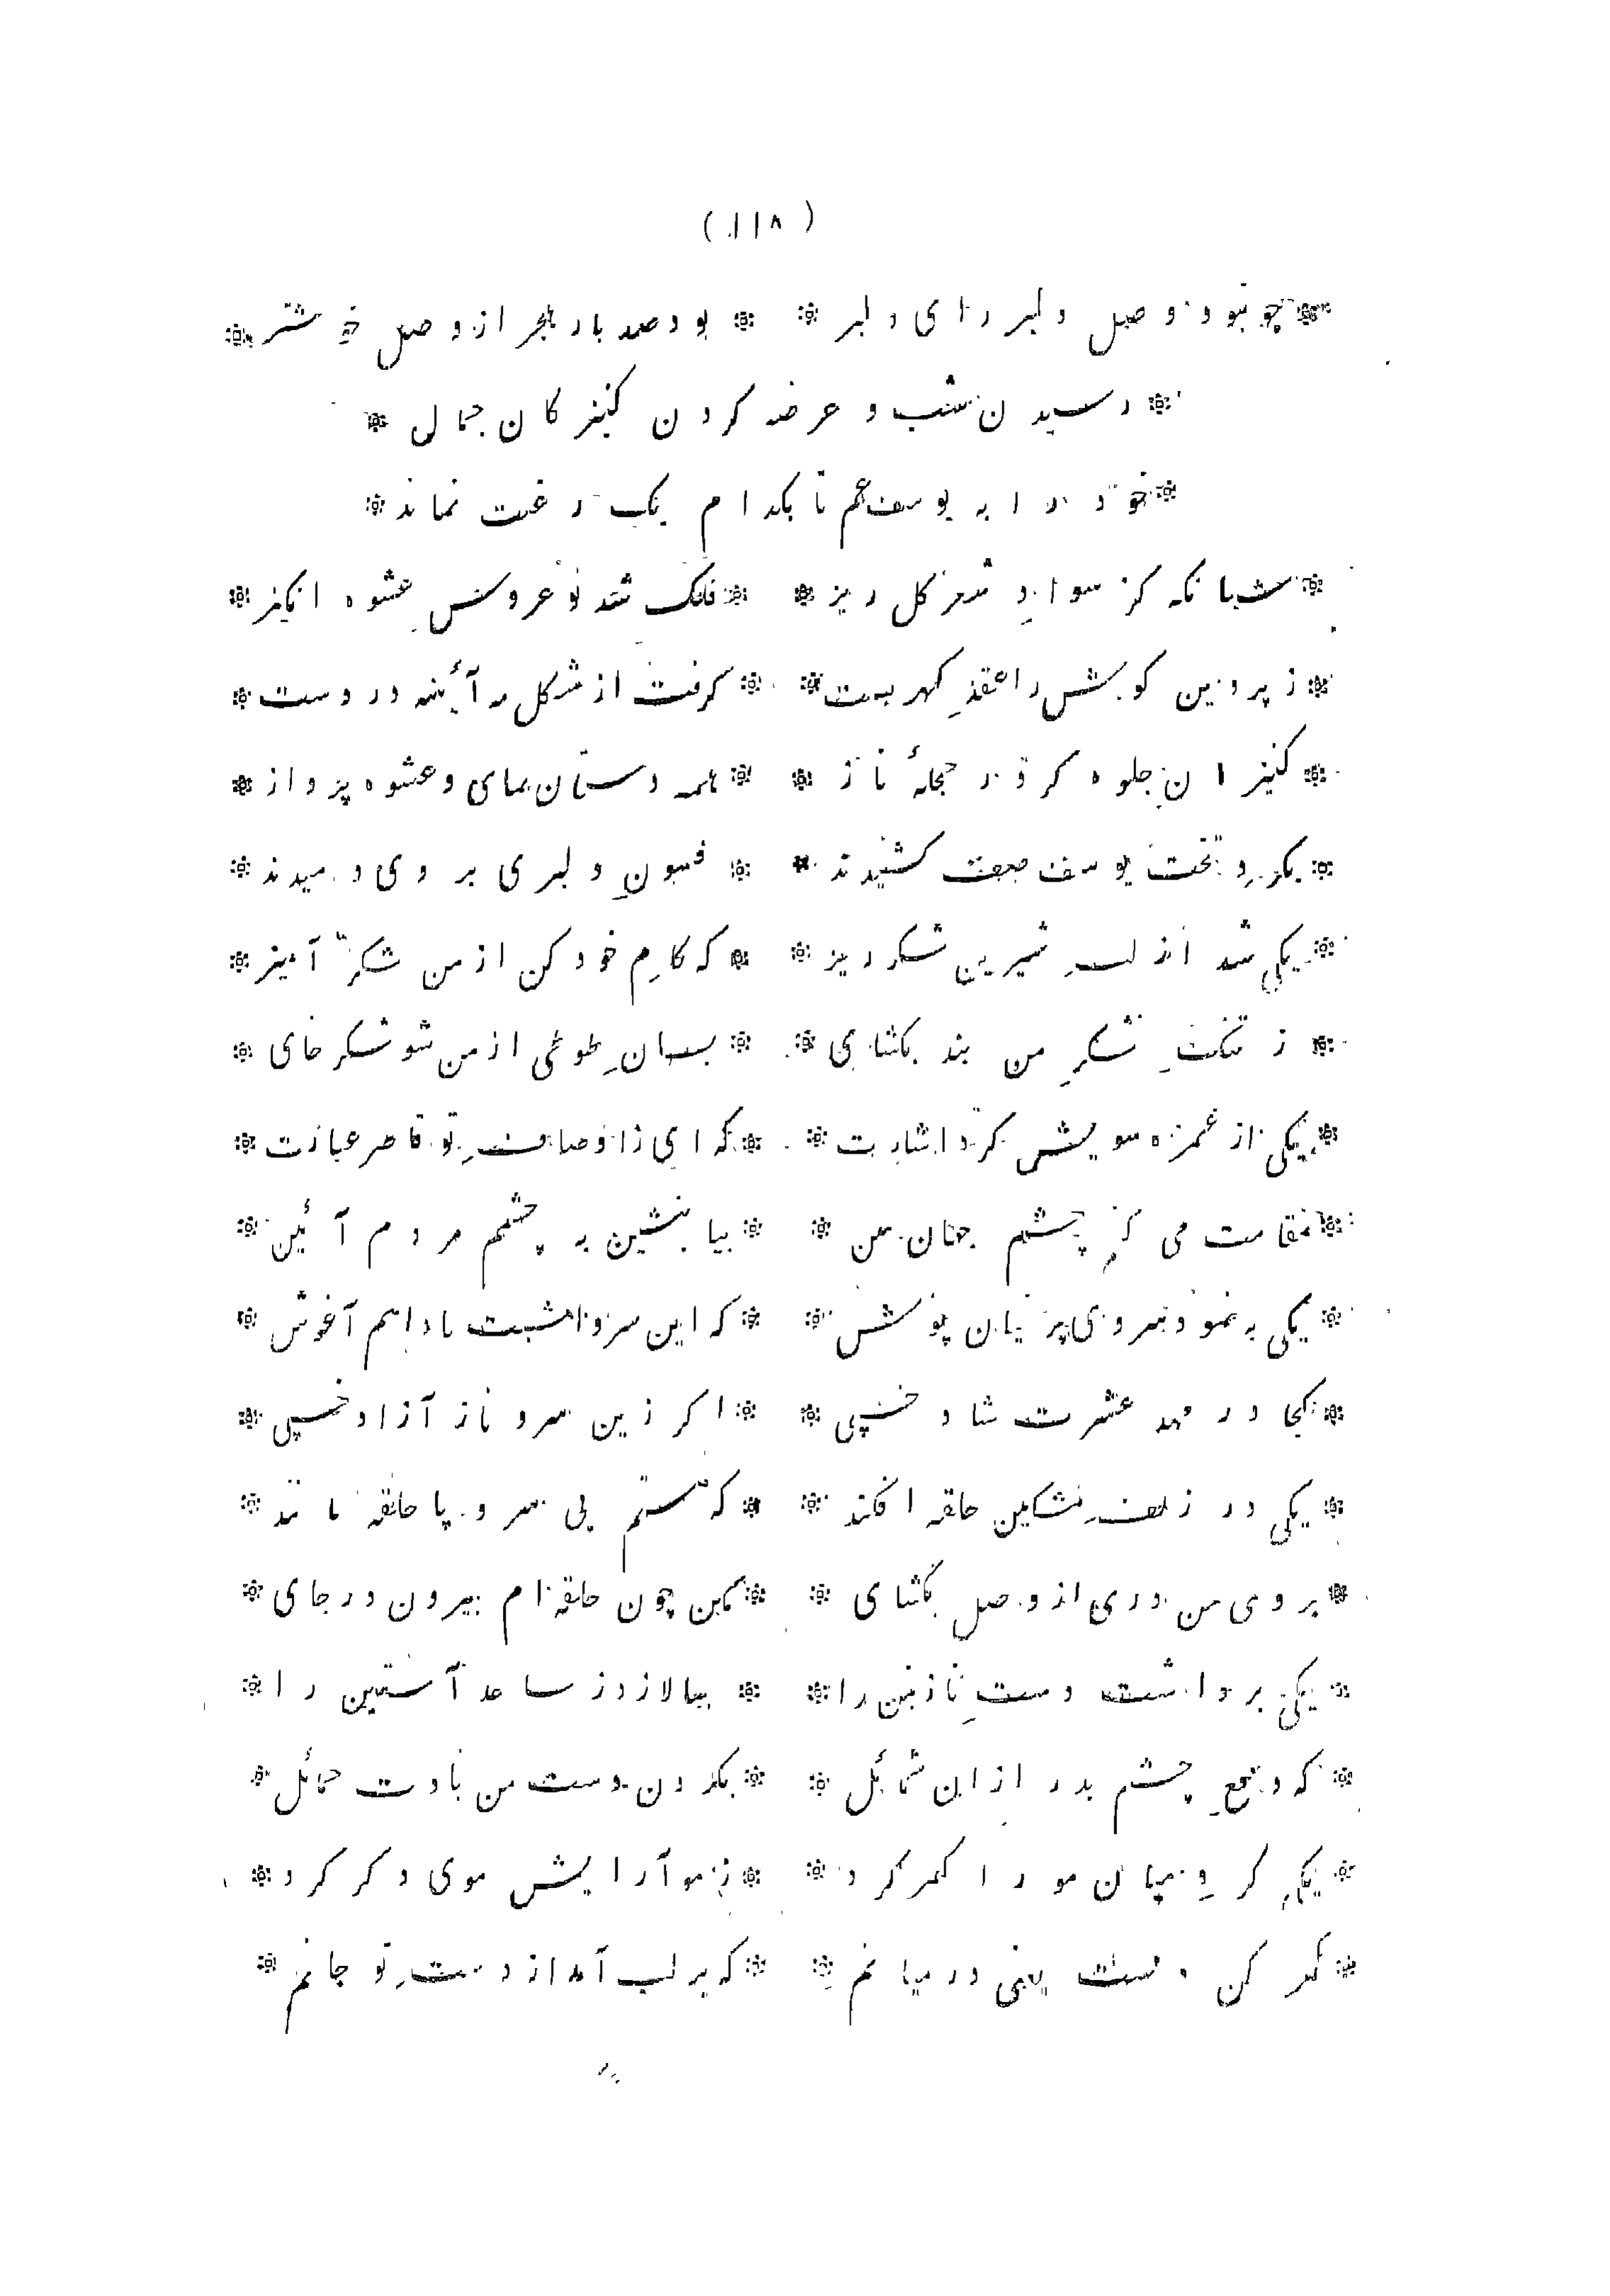 ( ١١٨ )
چو نبود وصل دلبر رای دلبر * بود صد بار هجر از وصل خوشتر
رسیدن شب و عرضه کردن کنیزکان جمال
خود را به یوسف عم تا بکدام یک رغبت نماید
شبانکه کز سواد شعر کل ریز * فلک شد نو عروس عشوه انکیز
ز پروین کوشش را عقد کهر بست * کرفت از شکل مه آئینه در دست
کنیزان جلوه کر در حجلهٔ ناز * همه دستان نمای و عشوه پرداز
بکرد تخت یوسف صف کشیدند * فسون دلبری بر وی دمیدند
یکی شد از لب شیرین شکر ریز * که کام خود کن از من شکر آمیز
ز تنک شکر من بند بکشای * بسان طوطی از من شو شکر خای
یکی از غمزه سویش کرد اشارت * که ای ز اوصاف تو قاصر عبارت
مقامت می کنم چشم جهان بین * بیا بنشین به چشم مردم آئین
یکی بنمود سروی پرنیان پوش * که این سرو امشبت بادا هم آغوش
کجا در مهد عشرت شاد خسپی * اکر زین سرو ناز آزاد خسپی
یکی در زلف مشکین حلقه افکند * که هستم بی سر و پا حلقه مانند
بروی من دری از وصل بکشای * مکن چون حلقه ام بیرون در جای
یکی برداشت دست نازنین را * ببالا زد ز ساعد آستین را
که دفع چشم بد را زان شمائل * بکردن دست من بادت حمائل
یکی کرد میان مو را کمر کرد * ز مو آرایش موی دکر کرد
کمر کن دست یعنی در میانم * که بر لب آمد از دست تو جانم